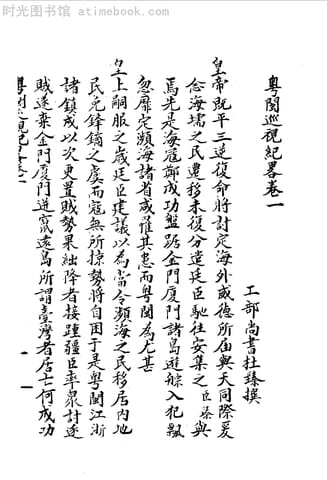 时光图书馆 - atimebook.com
粵閩巡視紀畧卷一
工部尚書杜臻撰
皇帝既平三逆復命將討定海外威德所届與天同際爰
念海壖之民遷移未復分遣廷臣馳往安集之臣臻與
焉先是海冦鄭成功盤踞金門厦門諸島遊艅入犯飄
忽靡定瀕海諸省咸罹其患而粵閩為尤甚
皇上嗣服之歲廷臣建議以為當令瀕海之民移居內地
民免鋒鏑之虞而冦無所掠勢將自困于是粵閩江浙
諸鎮咸以次更置賊勢果絀降者接踵疆臣率衆討逐
賊遂棄金門厦門遁竄遠島所謂臺灣者居亡何成功
粵閩巡視紀畧卷一
一